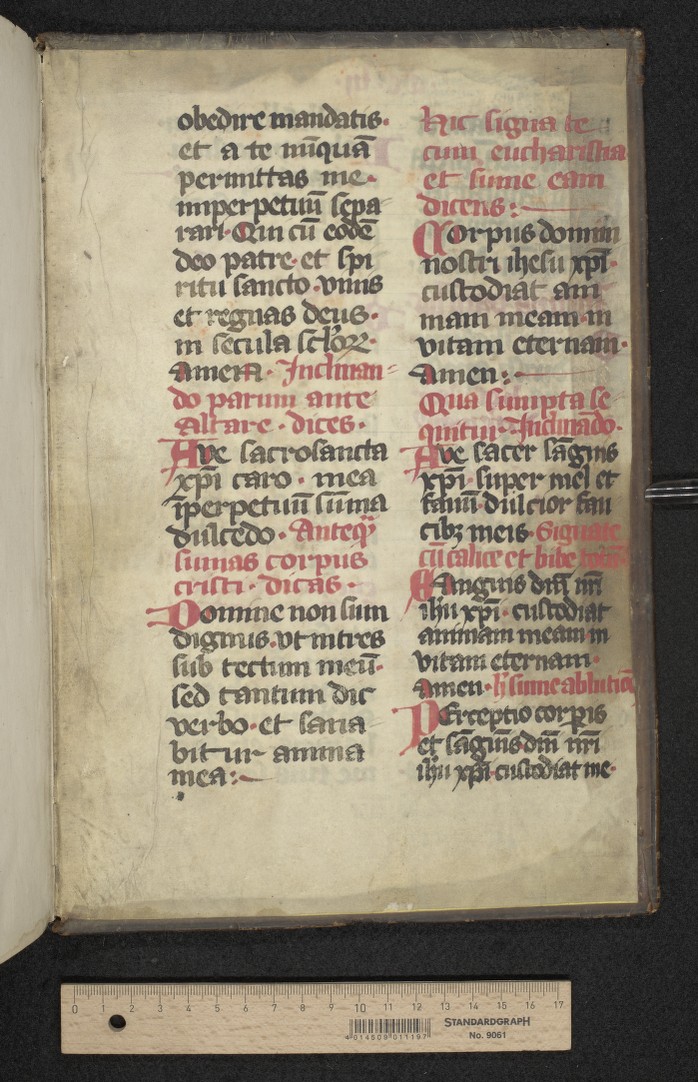 obedire mandatis·
et a te nūquā
permittas me·
imperpetuū sepa
rari· Qui cū eodē
deo patre· et spi
ritu sancto· viuis
et regnas deus·
in secula
amen· Inclinan=
do parum ante
altare· dices·
Ave sacrosancta
xp̄i caro· mea
īperpetuū sūma
dulcedo· Anteq̄
sumas corpus
cristi· dicas·
Domine non sum
dignus· vt intres
sub tectum meū·
sed tantum dic
verbo· et sana
bitur anima
mea:~
Hic signa te
cum eucharistia
et sume eam
dicens:~
Corpus domini
nostri ihesu xp̄i·
custodiat ani
mam meam in
vitam eternam·
Amen:~
Qua sumpta se
quitur· Inclinādo·
Ave sacer sāgīs
xp̄i· super mel et
fauū· dulcior fau
cibꝫ meis· Signate
cū calice et bibe
Sanguis dn̄i nr̄i
ihū xp̄i· custodiat
animam meam in
vitam eternam·
Amen· sume ablutiōē
PErceptio corp̄is
et sāguīs dn̄i nr̄i
ihū xp̄i custodiat me·
0 1 2 3 4 5 6 7 8 9 10 11 12 13 14 15 16 17
4 014509 011197
STANDARDGRAPH
No. 9061